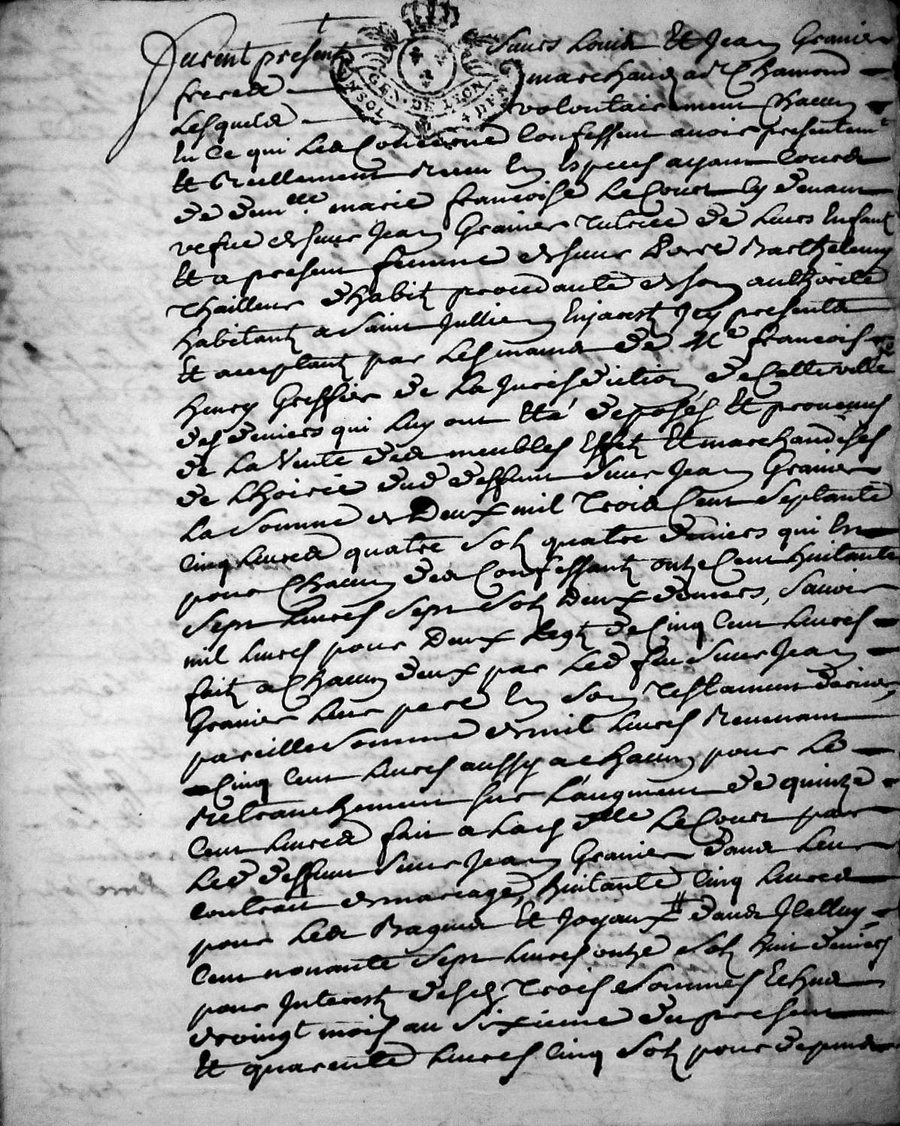 Furent presents Sieurs Louis Et Jean Granier
freres marchands a St Chamond
Lesquels volontairement Chacun
En Ce qui Les Concerne Confessent avoir presentemt
Et Reellement Receu En Especes ayant Cours
de demlle marie francoise LeCourt cy devant
vefve de sieur Jean Granier Tutrice de Leurs Enfants
Et a present femme de sieur Barthelemy
Thailleur d'habitz procedante de son authorité
habitantz a Saint Jullien Enjarest Icy presents
Et acceptantz par Les mains de Me francois
henry Greffier de La Jurisdiction de Cette ville
des deniers qui Luy ont Eté deposés Et provenus
de La Vente des meubles Effetz Et marchandises
de L'hoirie dud deffunt Sieur Jean Granier
La Somme de Deux mil Trois Cent Septante
Cinq Livres quatre Solz quatre deniers qui Est
pour Chacun des Confessantz onze Cent huitante
Sept Livres Sept Solz Deux deniers, Savoir
mil Livres pour Deux Legtz de Cinq Cent Livres
fait a Chacun deux par Led feu Sieur Jean
Granier Leur pere En Son Testament dernier,
pareille Somme de mil Livres Revenant
Cinq Cent Livres aussy a chacun pour Le
Retranchement Sur L'augment de quinze
Cent Livres fait a Lad dlle LeCourt par
Led deffunt Sieur Jean Granier dans Leur
Contrait de mariage, huitante Cinq Livres
pour Les Bagues Et Joyaux # dans Icelluy
Cent nonante Sept Livres onze Solz huit deniers
pour Interestz desd Trois Sommes Echus
de vingt mois au Sixieme du present
Et quarente Livres Cinq Solz pour depens